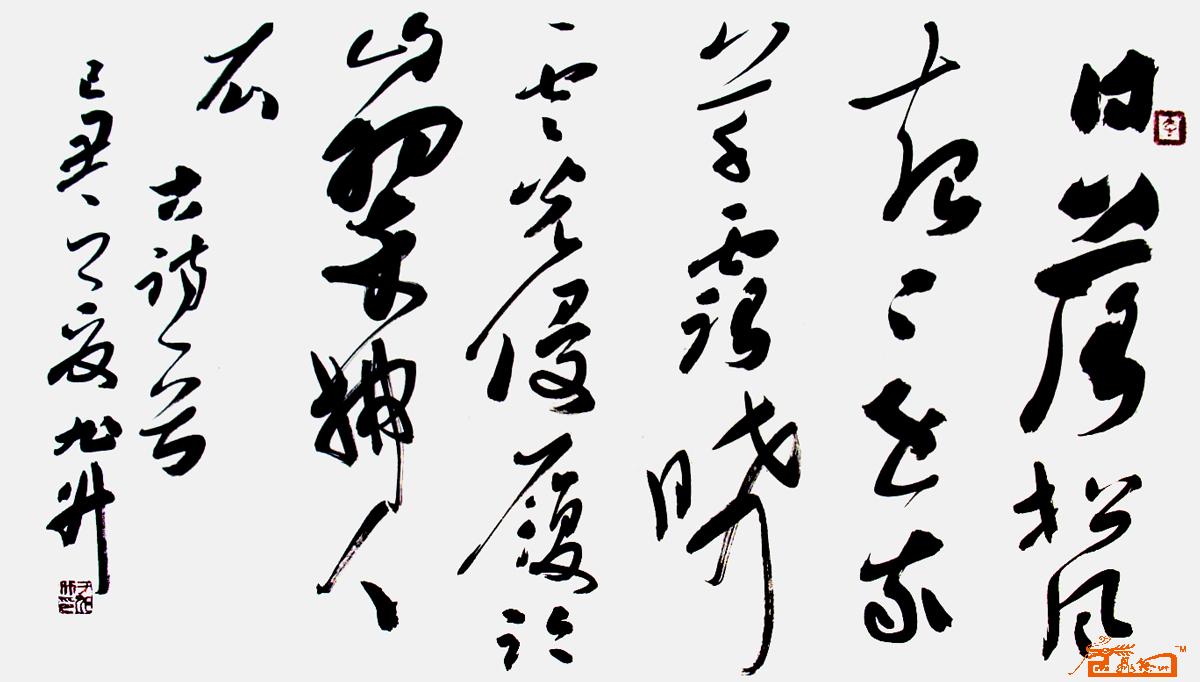 日落松风
起還家
草露晞
雲光侵履跡
山翠拂人
衣
古诗一首
己丑之夏旭升